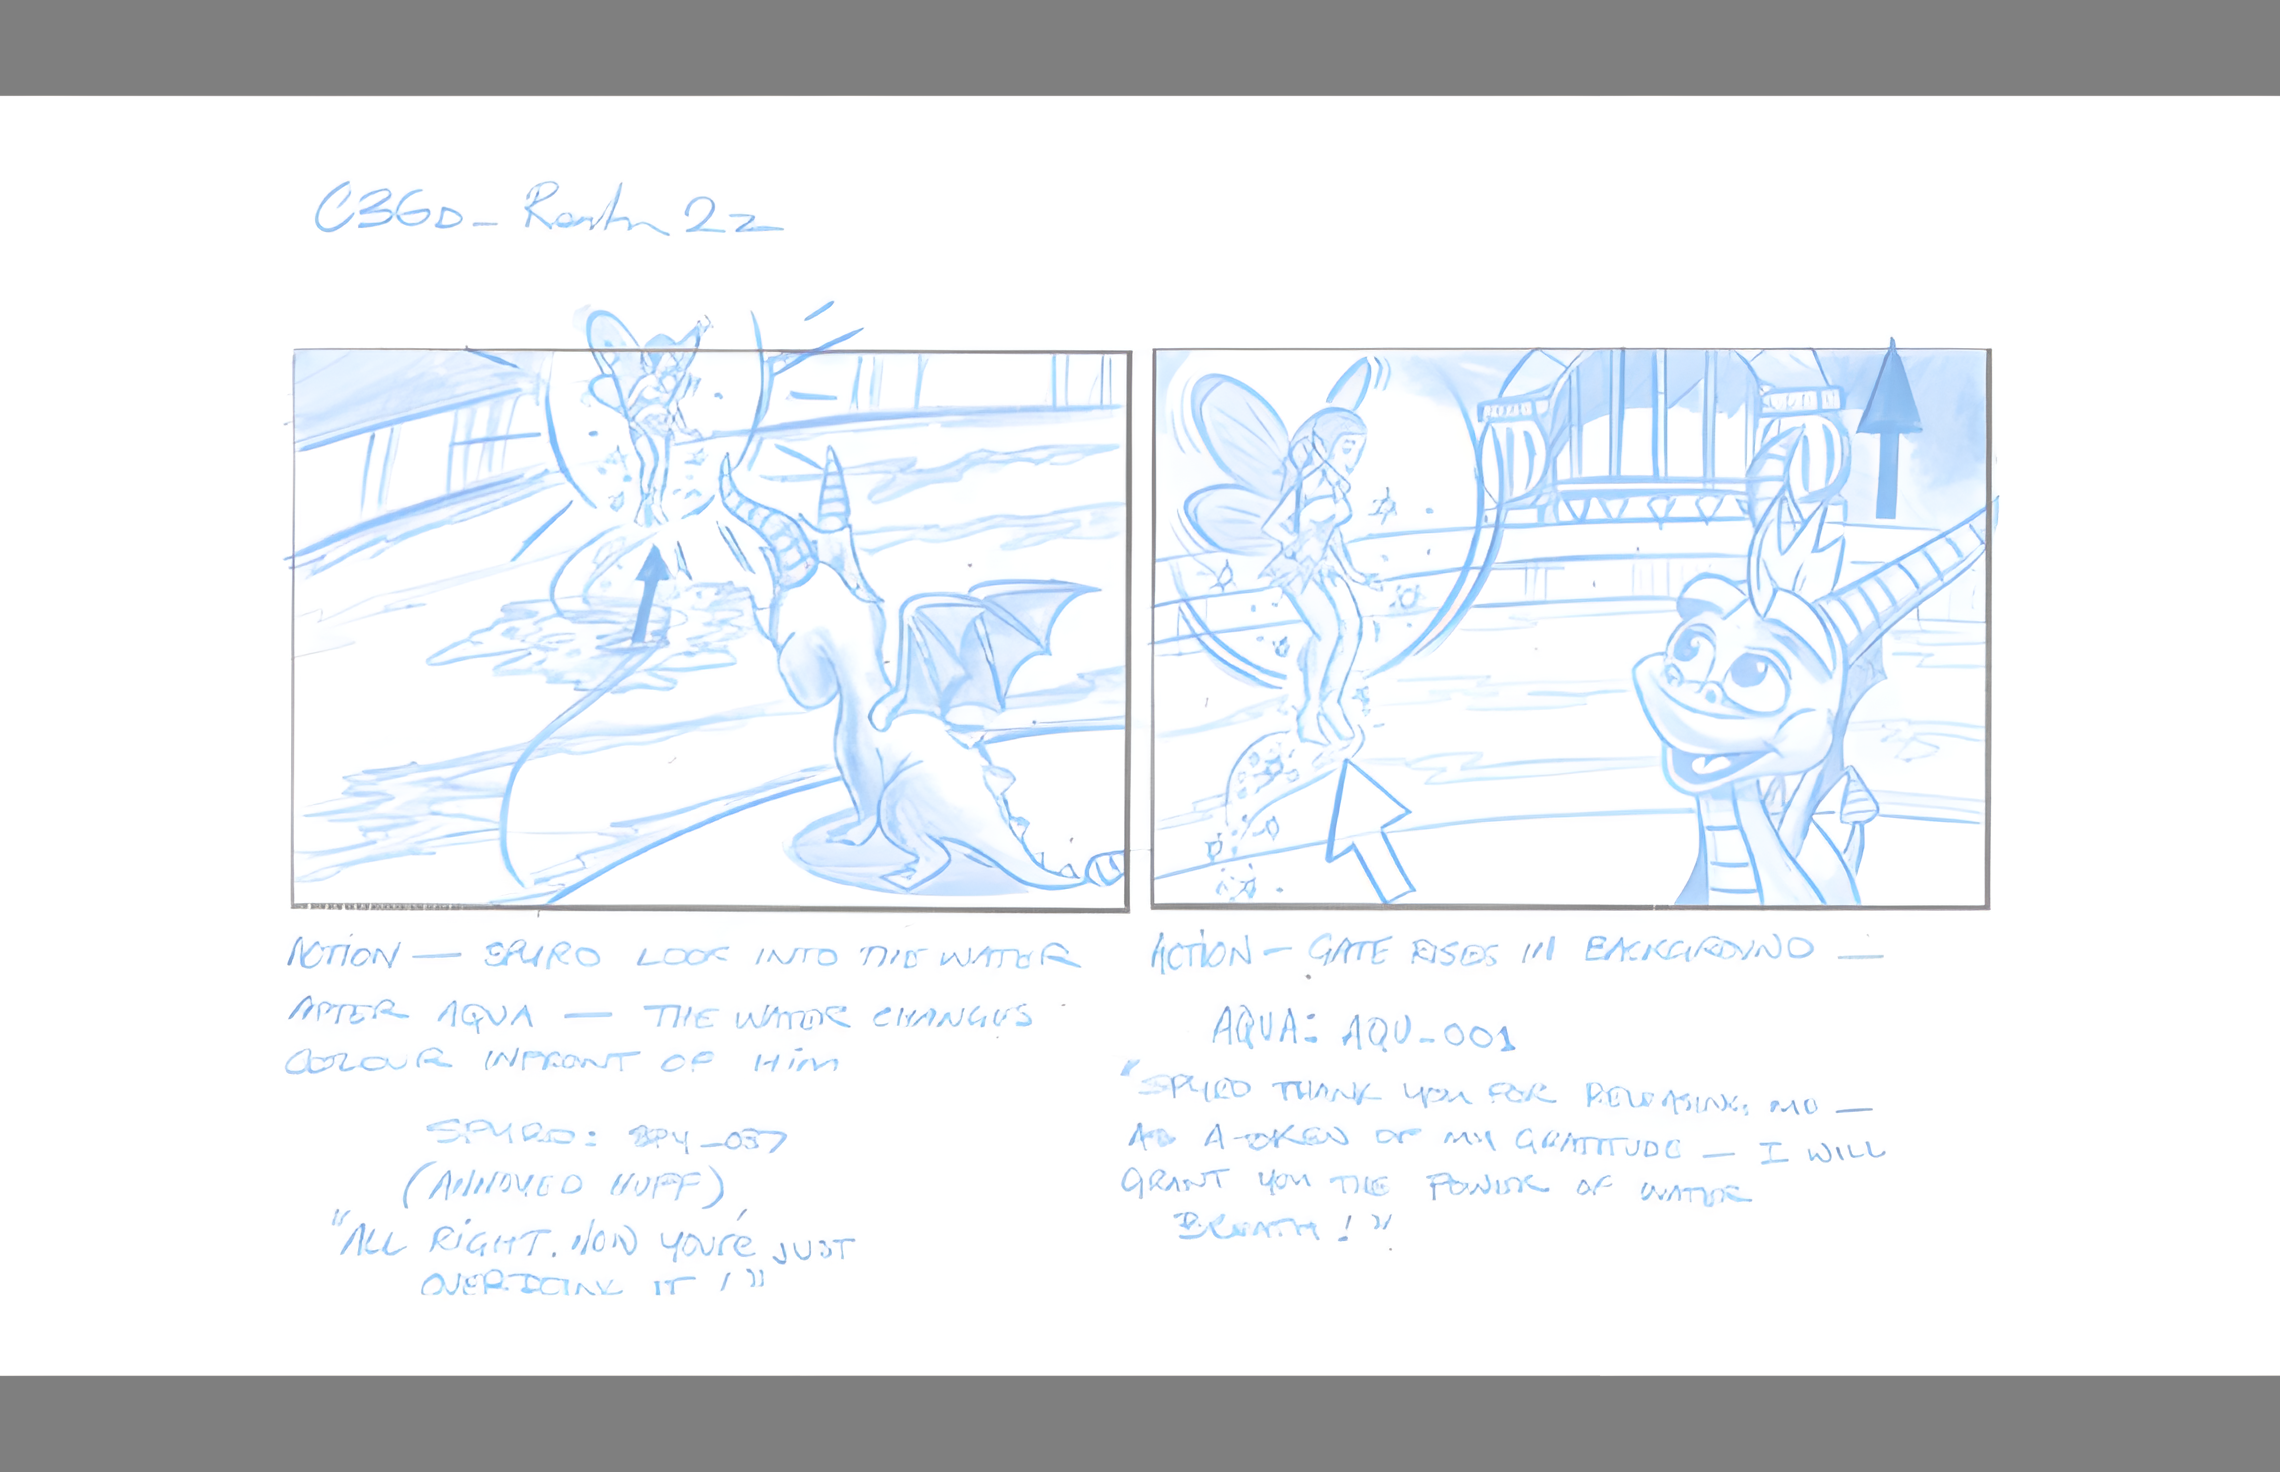 C36D_
ACTION — SPYRO LOOK INTO THE WATER
AFTER AQUA — THE WATER CHANGES
COLOUR INFRONT OF HIM
SPYRO: SPY_037
(ANNOYED HUFF)
"ALL RIGHT. NOW YOU'RE JUST
OVERDOING IT!"
ACTION — GATE RISES IN BACKGROUND —
AQUA: AQU_001
"SPYRO THANK YOU FOR RELEASING ME —
AS A TOKEN OF MY GRATITUDE — I WILL
GRANT YOU THE POWER OF WATER
BREATH!"